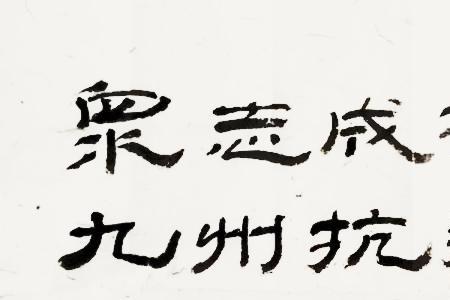 眾志成
九州抗